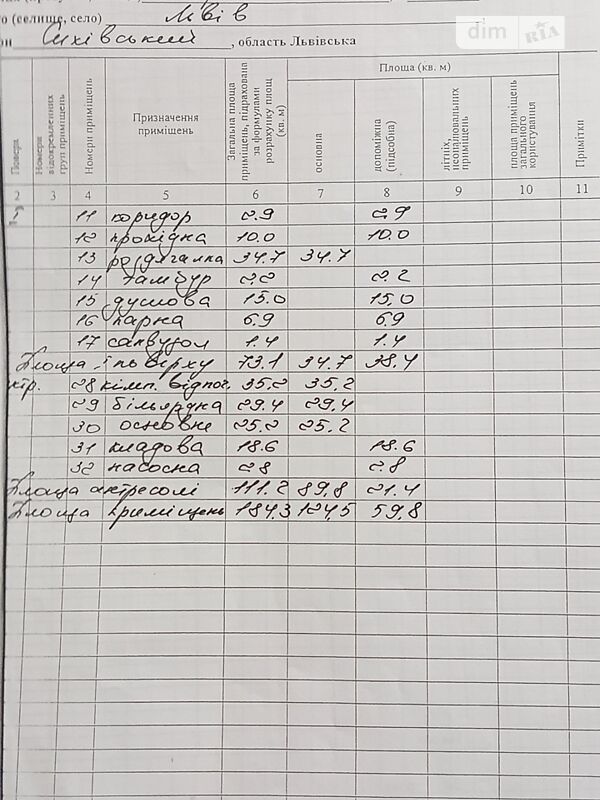 о (селище, село) Львів
он Сихівський, область Львівська
dim RIA
Поверх
Номери відокремлених груп приміщень
Номери приміщень
Призначення приміщень
Загальна площа приміщень, підрахована за формулами розрахунку площ (кв. м)
Площа (кв. м)
основна
допоміжна (підсобна)
літніх, неопалювальних приміщень
площа приміщень загального користування
Примітки
2 3 4 5 6 7 8 9 10 11
1 11 коридор 2.9 2.9
12 прохідна 10.0 10.0
13 роздягалка 34.7 34.7
14 тамбур 2.2 2.2
15 душова 15.0 15.0
16 парна 6.9 6.9
17 санвузол 1.4 1.4
Площа І поверху 73.1 34.7 38.4
нтр. 28 кімн. відпоч. 35.2 35.2
29 більярдна 29.4 29.4
30 основне 25.2 25.2
31 кладова 18.6 18.6
32 насосна 2.8 2.8
Площа антресолі 111.2 89.8 21.4
Площа приміщень 184.3 124.5 59.8